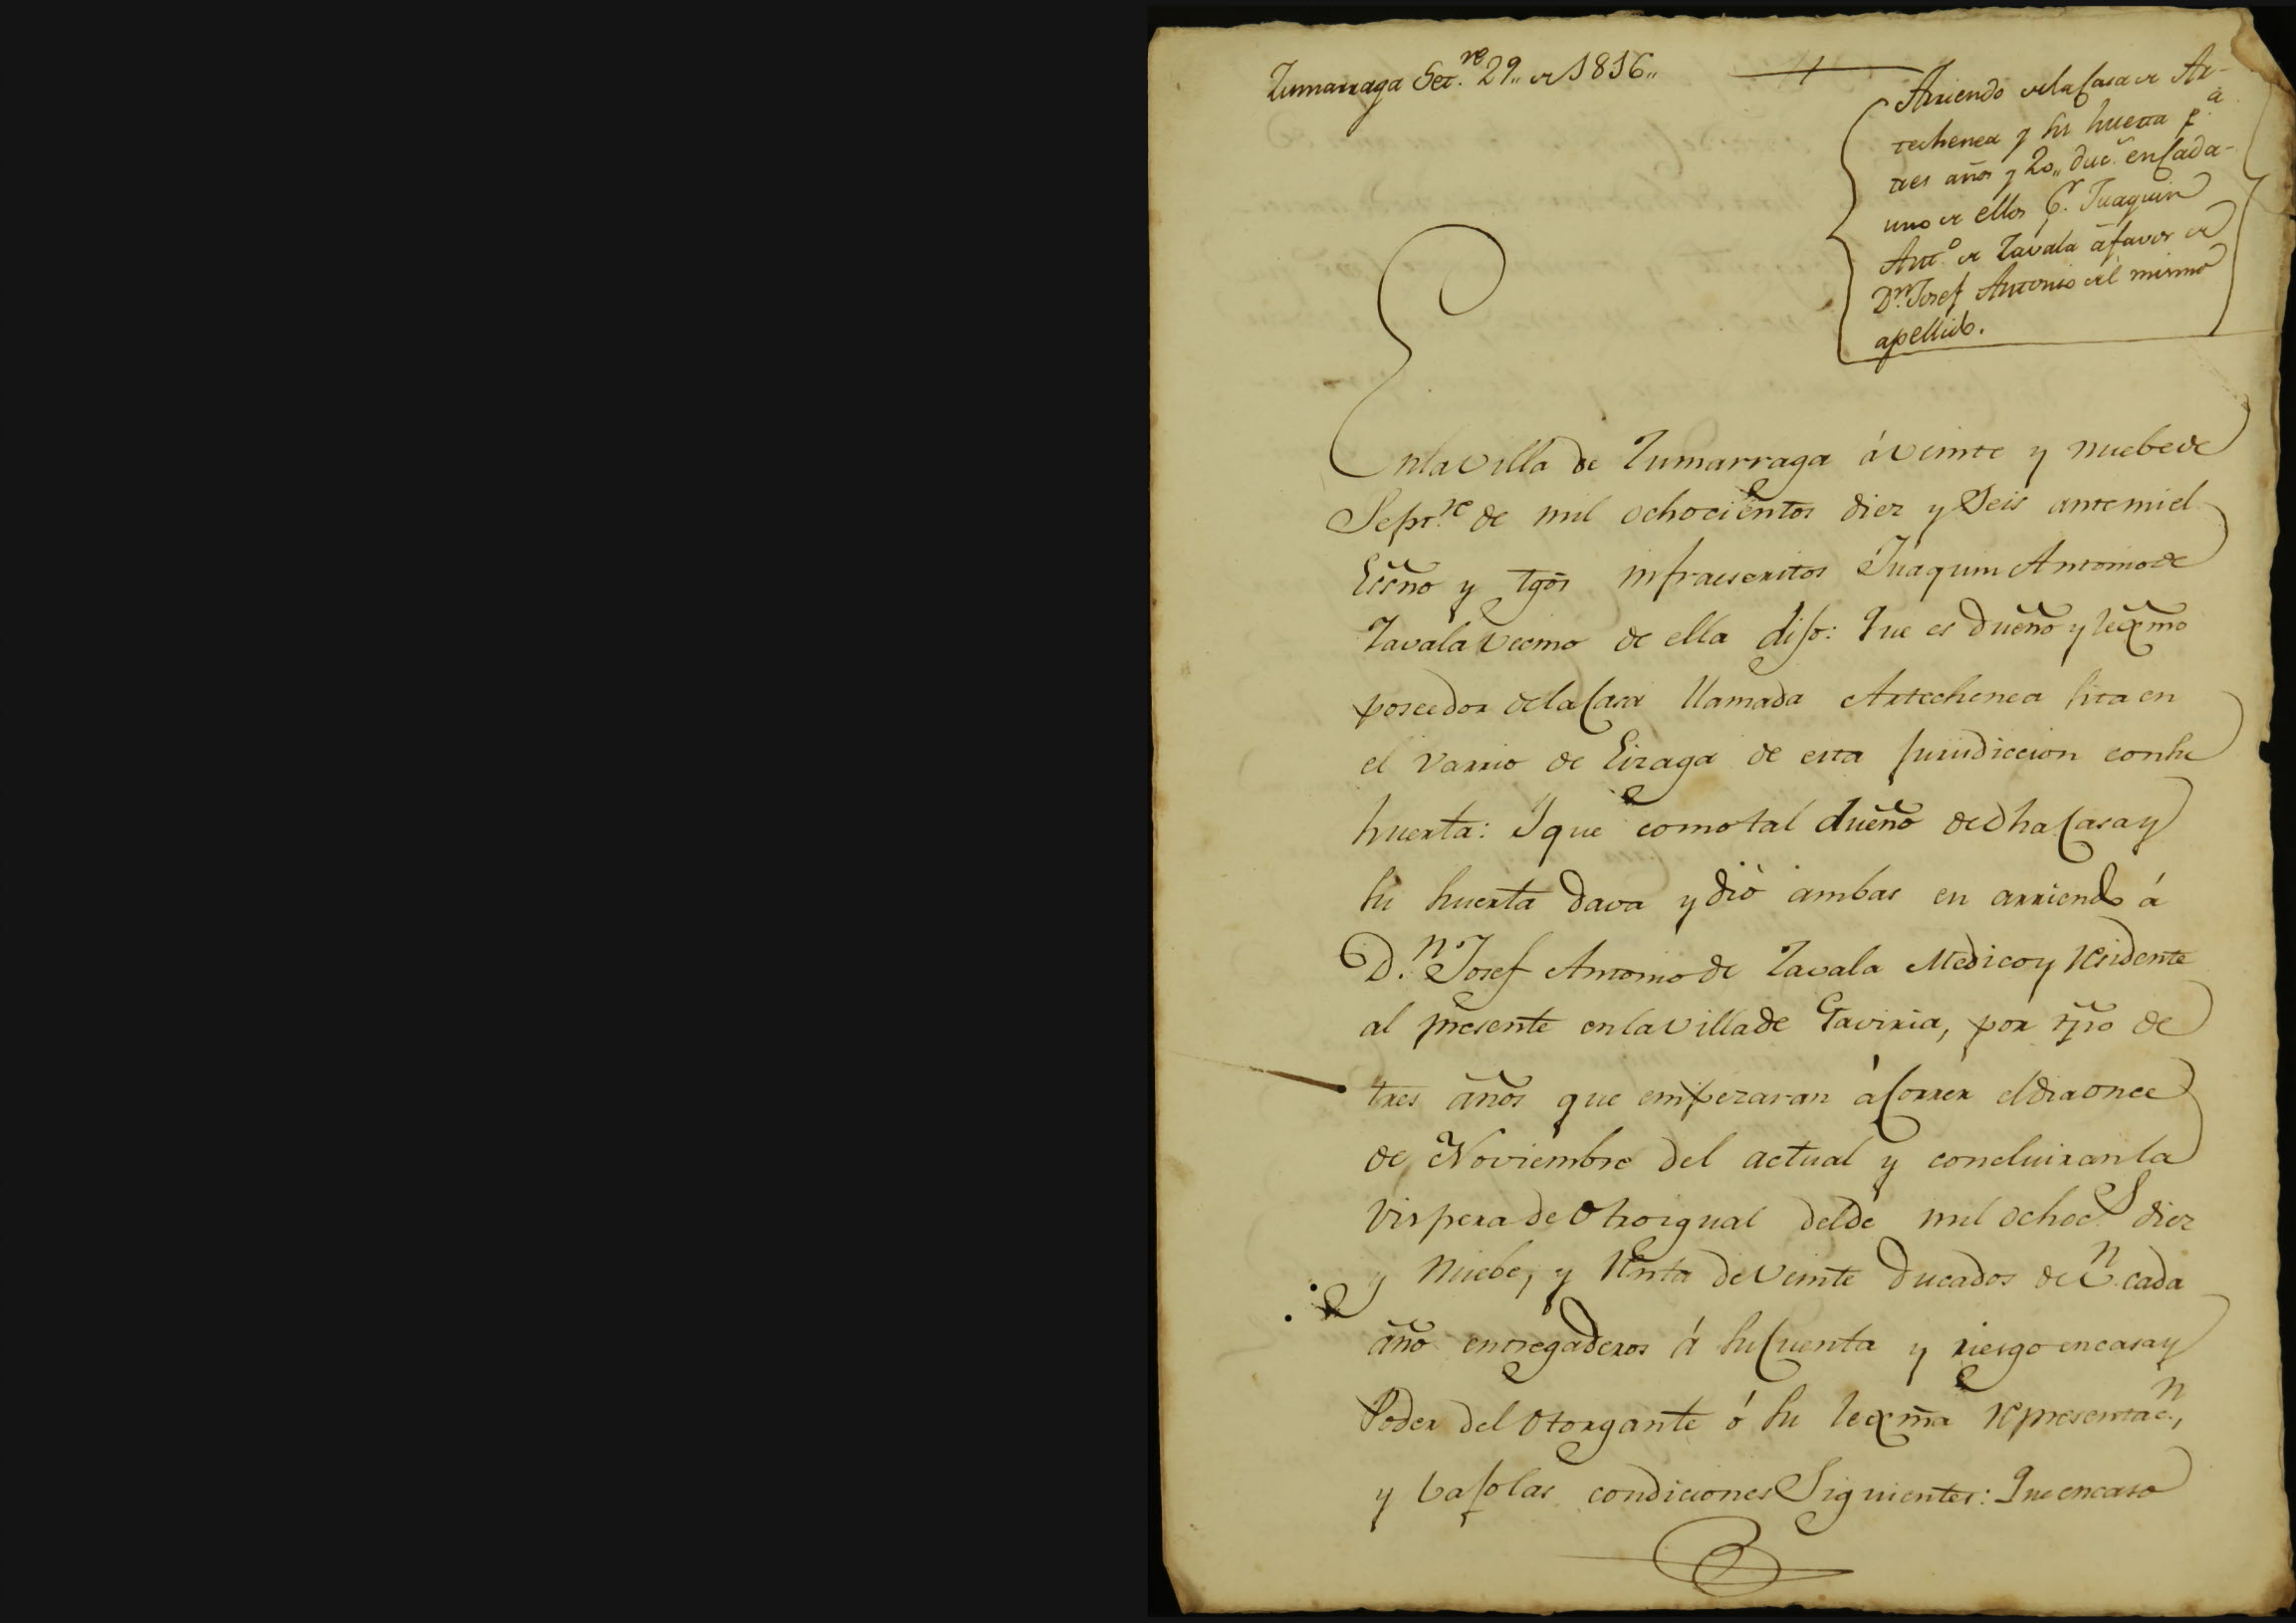 Zumarraga Set.re 29,, de 1816,,
Arriendo dela Casa de Ar-
techenea y su huerta p.a
tres años y 20,, duc.s en Cada-
uno de ellos P.r Juaquin
Ant.o de Zavala á favor de
D.n Josef Antonio del mismo
apellido.
En la villa de Zumarraga á veinte y nuebe de
Sept.re de mil ochocientos diez y Seis ante mi el
Essño y tgõs infraescritos Juaquin Antonio de
Zavala vecino de ella dijo: Que es dueño y lexmo
poseedor dela Casa llamada Artechenea sita en
el varrio de Eizaga de esta Jurisdiccion con su
huerta: Y que como tal dueño de dha Casa y
su huerta dava y dió ambas en arriendo á
D.n Josef Antonio de Zavala Medico y residente
al presente en la villa de Gaviria, por tr̃no de
tres años que empezaran á Correr el dia once
de Noviembre del actual y concluiran la
vispera de otro igual del de mil ochoc.s diez
y Nuebe, y Renta de veinte ducados de v.n cada
año entregaderos á su Cuenta y riesgo en casa y
Poder del otorgante ó su lexma representac.n,
y bajo las condiciones Siguientes: Que en caso